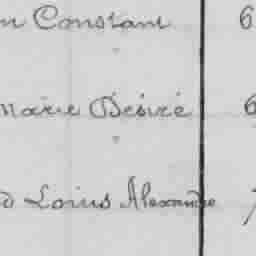 n Constant 6
Marie Désiré 6
d Louis Alexandre 7